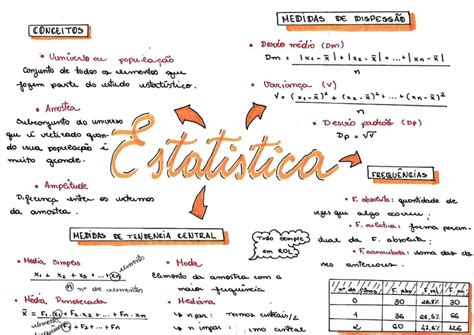 CONCEITOS
• Universo ou população
Conjunto de todos os elementos que
fazem parte do estudo estatístico.
• Amostra
Subconjunto do universo
que é retirado quan-
do sua população é
muito grande.
• Amplitude
Diferença entre os extremos
da amostra.
Estatística
MEDIDAS DE DISPESSÃO
• Desvio médio (Dm)
Dm = |x1 - x̄| + |x2 - x̄| + ... + |xn - x̄|
n
• Variança (V)
V = (x1 - x̄)² + (x2 - x̄)² + ... + (xn - x̄)²
n
• Desvio padrão (Dp)
Dp = √V
FREQUÊNCIAS
• F. absoluta: quantidade de
vezes que algo ocorreu;
• F. relativa: forma percen-
dual da F. absoluta;
• F. acumulada: soma das de
seis anteriores.
MEDIDAS DE TENDENCIA CENTRAL
• Média Simples
x1 + x2 + x3 + ... + xn elemento
n nº de elementos
• Média Ponderada
x̄ = F1.x1 + F2.x2 + ... + Fn.xn elemento
F1 + F2 + ... + Fn
• Moda
Elemento da amostra com a
maior frequência
• Mediana
↳ n par: nos centrais/2
↳ n impar: central
Tudo sempre
em ROL
nº de filhos F. abs F. rel F.
0 30 30
1 36 66
2 36